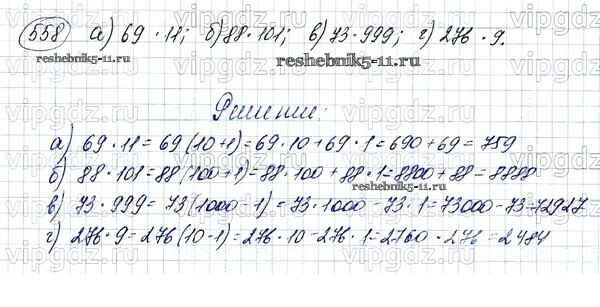 558 а) 69 · 11; б) 88 · 101; в) 73 · 999; г) 276 · 9.
reshebnik5-11.ru
Решение:
а) 69 · 11 = 69 (10+1) = 69 · 10 + 69 · 1 = 690 + 69 = 759
б) 88 · 101 = 88 (100+1) = 88 · 100 + 88 · 1 = 8800 + 88 = 8888
reshebnik5-11.ru
в) 73 · 999 = 73 (1000 - 1) = 73 · 1000 - 73 · 1 = 73000 - 73 = 72927
г) 276 · 9 = 276 (10-1) = 276 · 10 - 276 · 1 = 2760 - 276 = 2484
vipgdz.ru